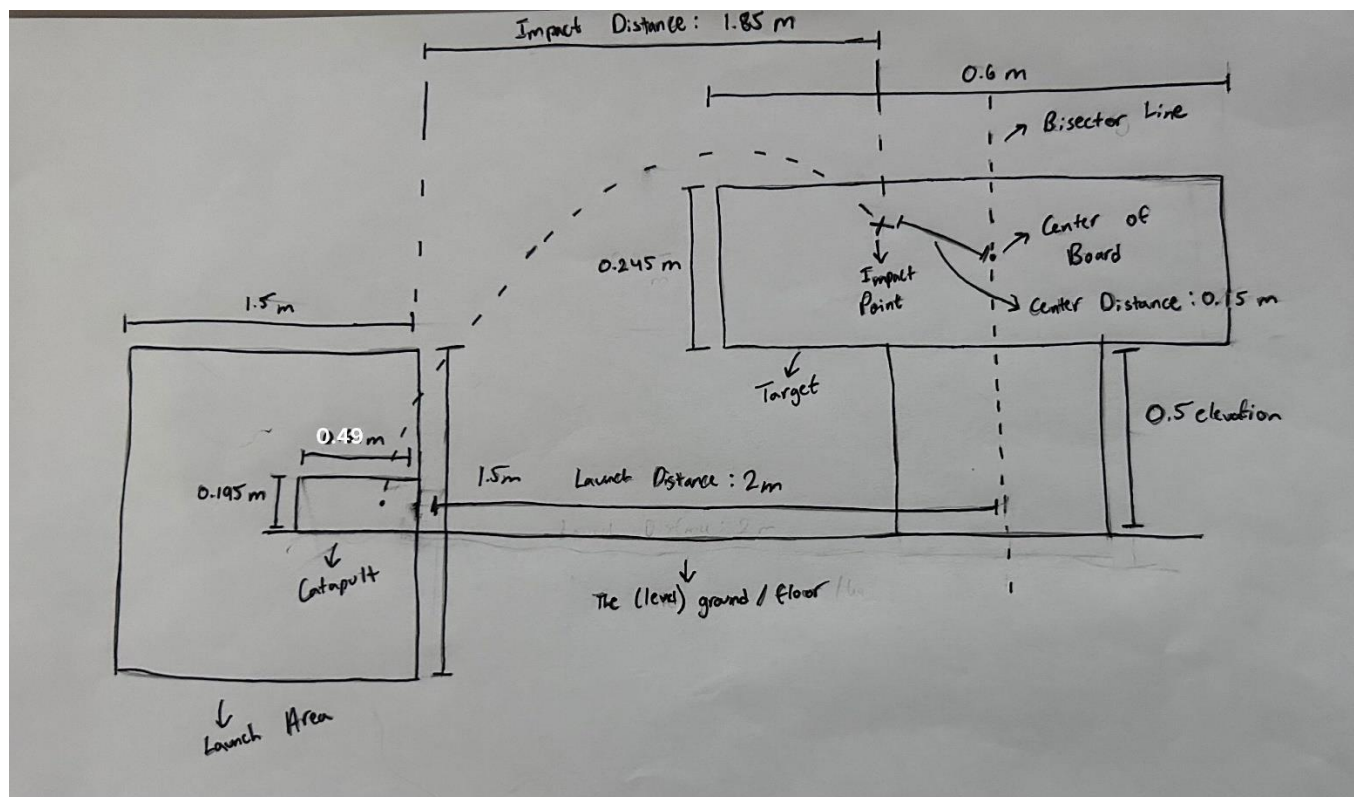 Impact Distance: 1.85 m
0.6 m
Bisector Line
Center of
Board
0.245 m
Impact
Point
Center Distance: 0.15 m
1.5 m
Target
0.5 elevation
0.49 m
1.5m
Launch Distance: 2m
0.195 m
Catapult
The (level) ground / floor
Launch Area